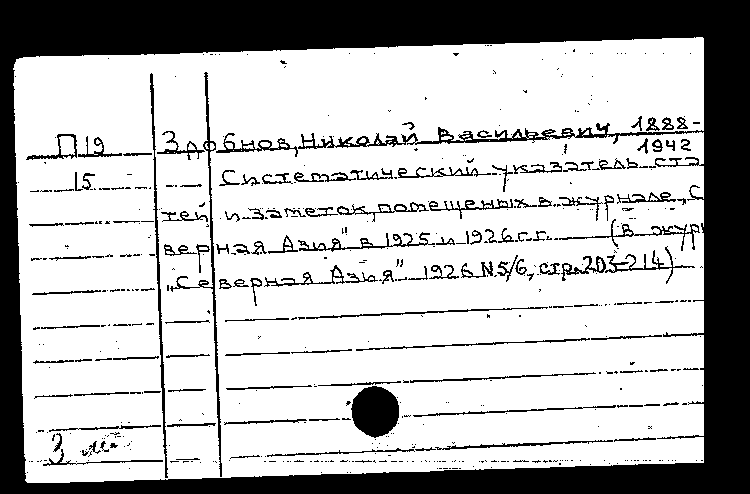 П19 Здобнов, Николай Васильевич, 1888-
1942
15 Систематический указатель ста
тей и заметок, помещеных в журнале „С
верная Азия" в 1925 и 1926 г.г. (в жур
„Северная Азия" 1926 N5/6, стр. 203-214)
3